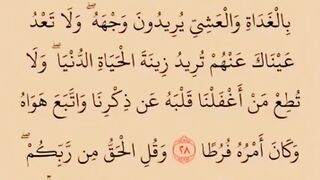 بِالْغَدَاةِ وَالْعَشِيِّ يُرِيدُونَ وَجْهَهُ ۖ وَلَا تَعْدُ
عَيْنَاكَ عَنْهُمْ تُرِيدُ زِينَةَ الْحَيَاةِ الدُّنْيَا ۖ وَلَا
تُطِعْ مَنْ أَغْفَلْنَا قَلْبَهُ عَن ذِكْرِنَا وَاتَّبَعَ هَوَاهُ
وَكَانَ أَمْرُهُ فُرُطًا ۝٢٨ وَقُلِ الْحَقُّ مِن رَّبِّكُمْ ۖ